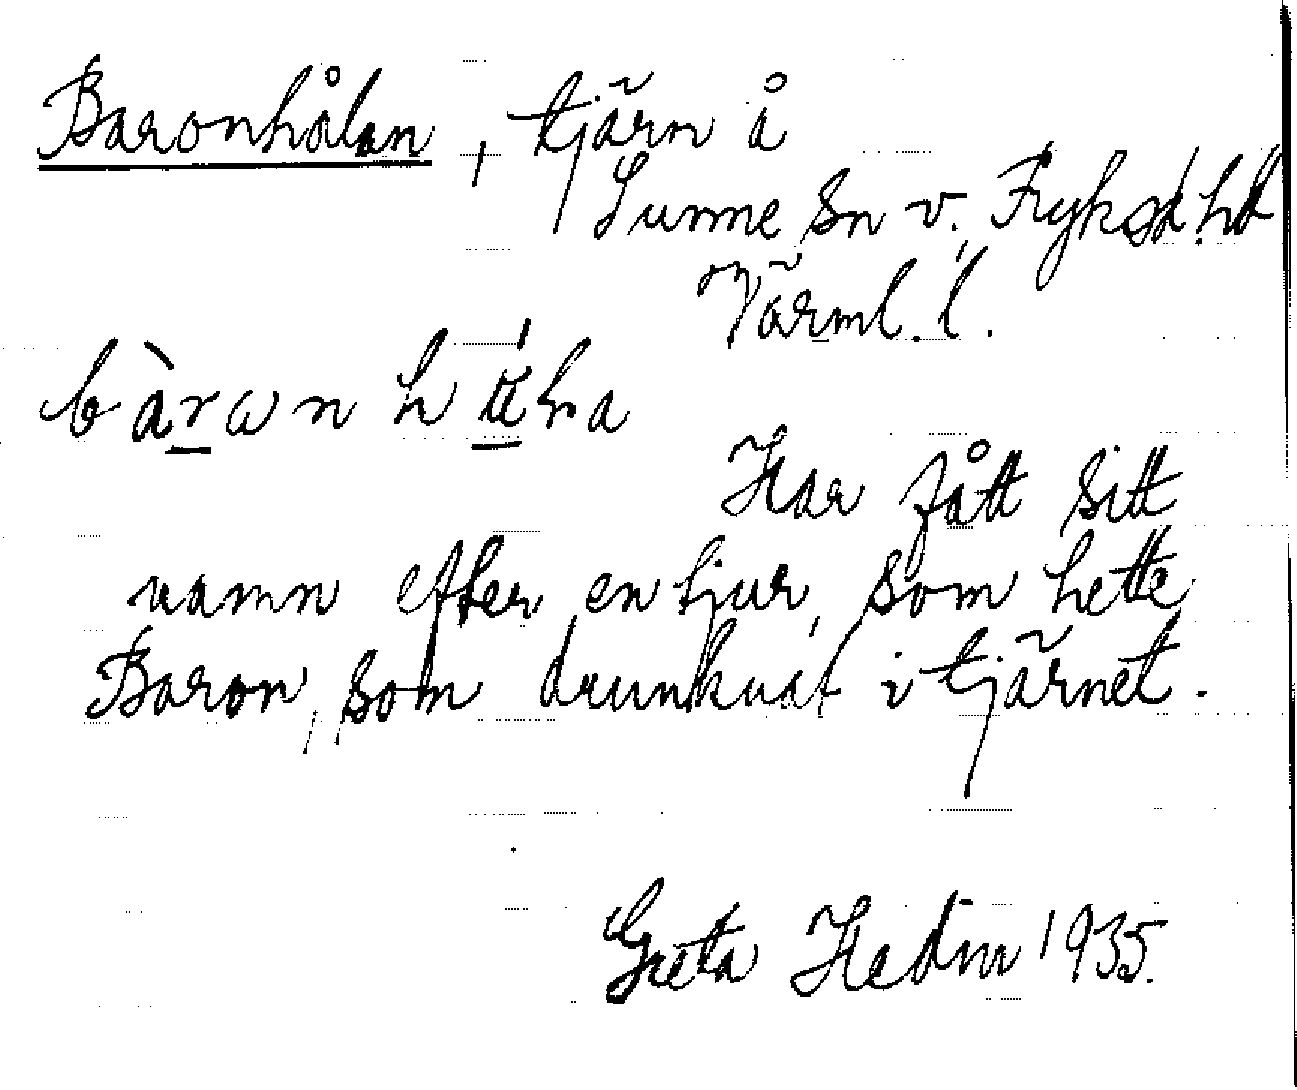 Baronhålan, tjärn å
Sunne sn v., Fryksd. hd
Värml. l.
Har fått sitt
namn efter en tjur, som hette
Baron, som drunknat i tjärnet.
Greta Hedin 1935.